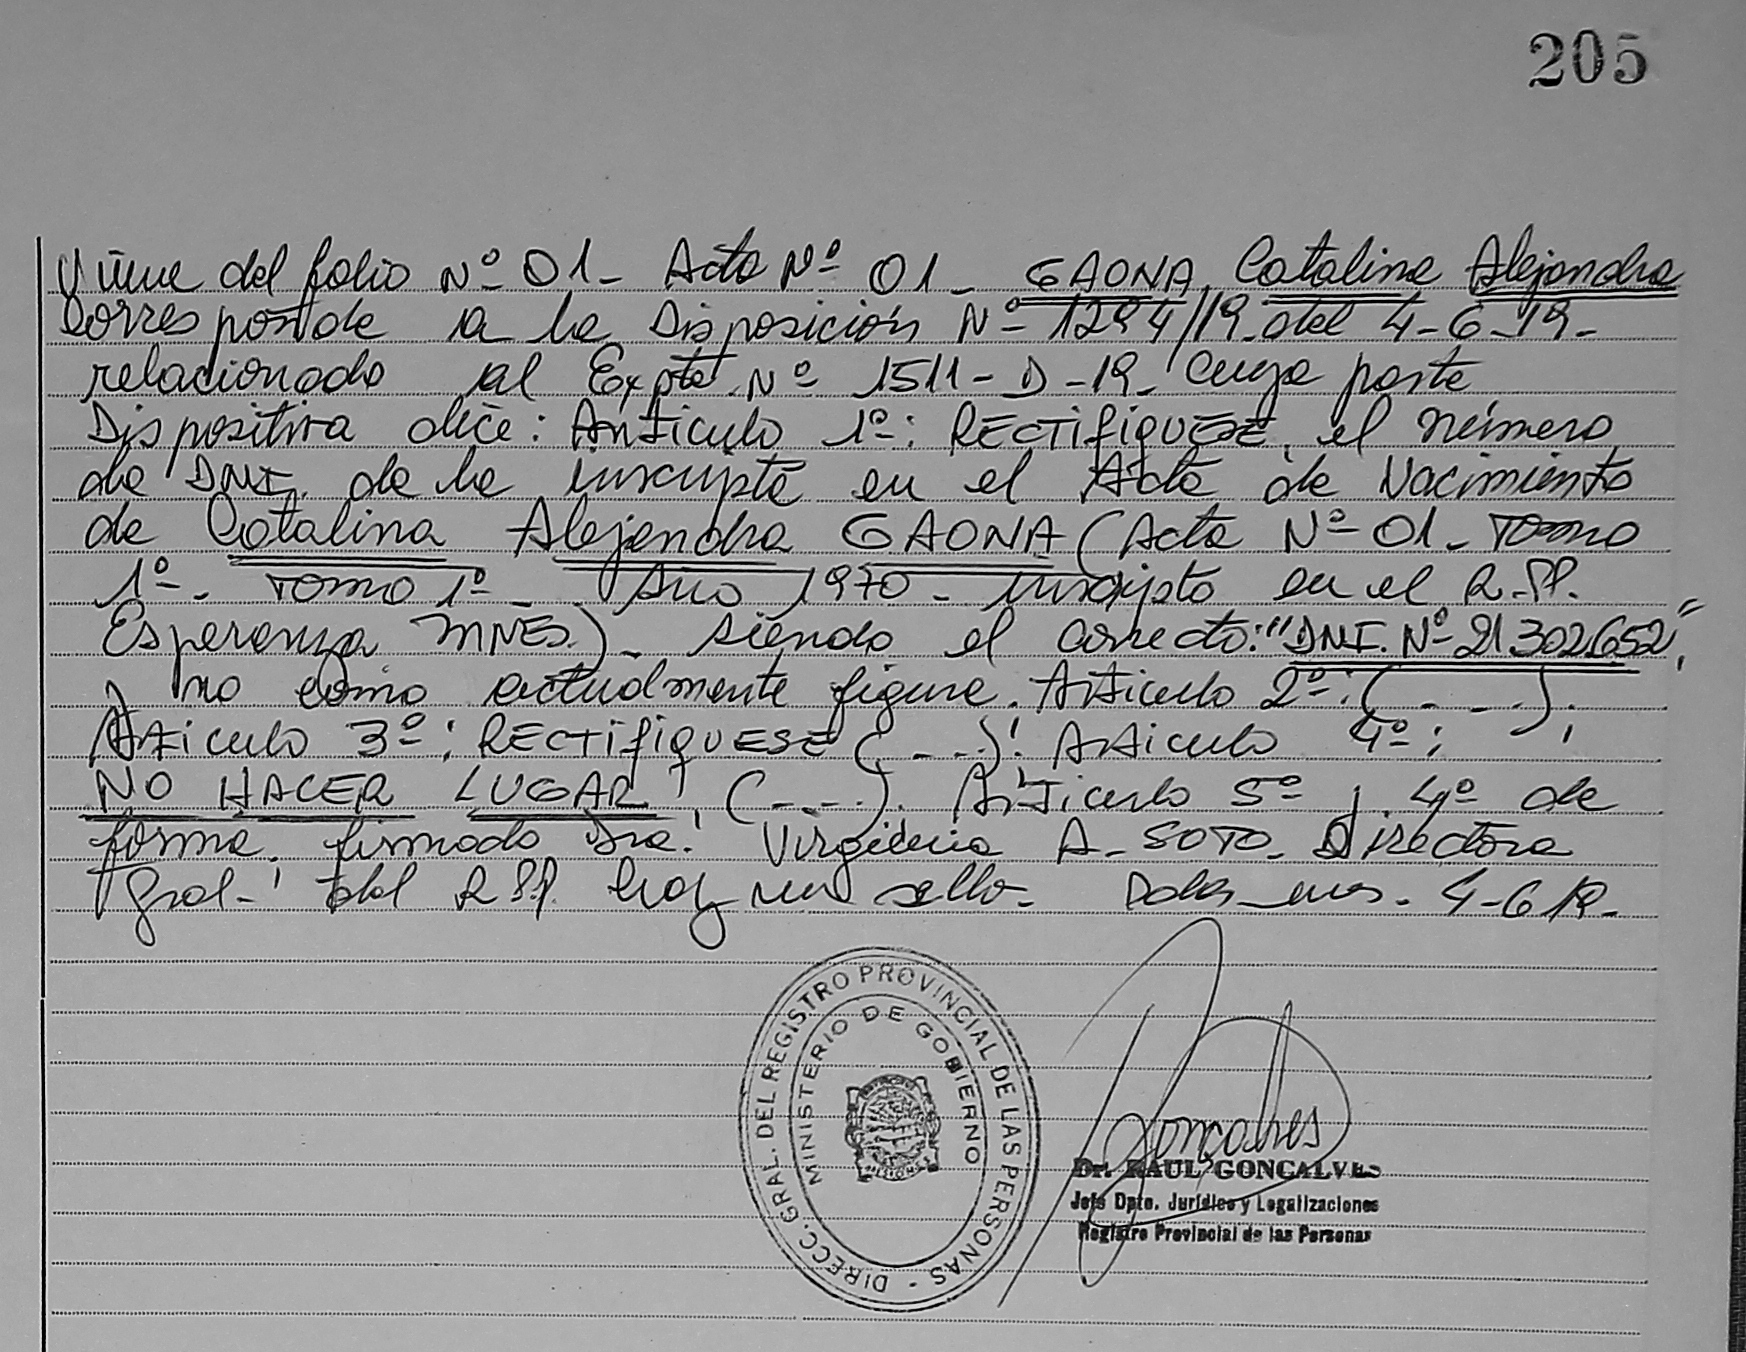 205
Viene del folio Nº 01- Acta Nº 01- GAONA, Catalina Alejandra
Corresponde a la Disposición Nº 1294/19. del 4-6-19-
relacionado al Expte. Nº 1511-D-19- Cuya parte
Dispositiva dice: Artículo 1º: RECTIFIQUESE, el número
de DNI. de la inscripta en el Acta de Nacimiento
de Catalina Alejandra GAONA (Acta Nº 01- Tomo
1º-. Tomo 1º- Año 1970- inscripto en el R.PP.
Esperanza MNES.)- siendo el correcto: "DNI. Nº 21302652",
y no como actualmente figura. Artículo 2º: (- - -).
Artículo 3º: RECTIFIQUESE (- - -). Artículo 4º:
NO HACER LUGAR (- - -). Artículo 5º y 4º de
forma. firmado Dra. A- SOTO- Directora
Gral- del R.PP. hay un sello- 4-6-19-
DIRECC. GRAL. DEL REGISTRO PROVINCIAL DE LAS PERSONAS -
MINISTERIO DE GOBIERNO
MISIONES
Goncalves
Dr. RAUL GONCALVES
Jefe Dpto. Jurídico y Legalizaciones
Registro Provincial de las Personas